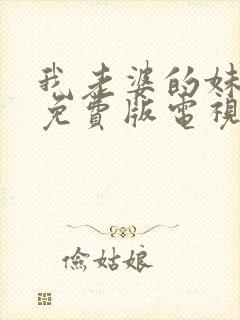 我老婆的妹
免費版電視
儉姑娘